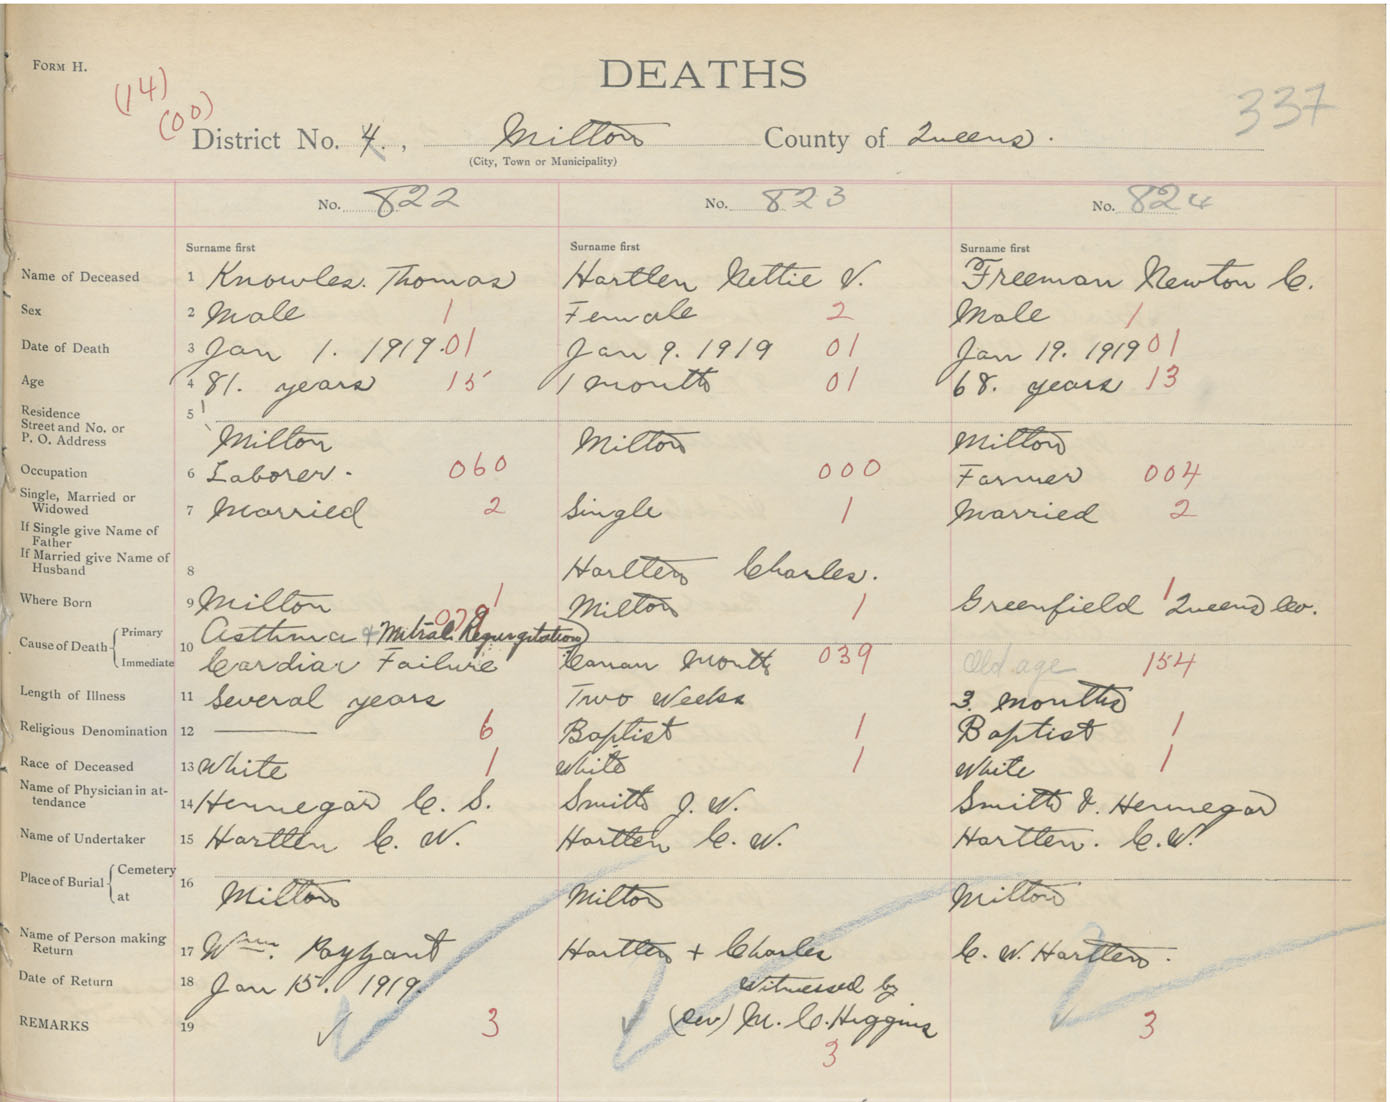 FORM H.
DEATHS
(14)
(00)
337
District No. 4., Milton County of Queens.
(City, Town or Municipality)
No. 822 No. 823 No. 824
Surname first Surname first Surname first
Name of Deceased 1 Knowles. Thomas Hartlen Nettie V. Freeman Newton C.
Sex 2 Male 1 Female 2 Male 1
Date of Death 3 Jan 1. 1919. 01 Jan 9. 1919 01 Jan 19. 1919 01
Age 4 81. years 15 1 month 01 68. years 13
Residence
Street and No. or
P. O. Address
5
Milton Milton Milton
Occupation 6 Laborer. 060 000 Farmer 004
Single, Married or
Widowed 7 Married 2 Single 1 Married 2
If Single give Name of
Father
If Married give Name of
Husband 8 Hartlen Charles.
Where Born 9 Milton 1 Milton 1 Greenfield 1 Queens Co.
Cause of Death { Primary
Immediate
10
Asthma + Mitral Regurgitation 079
Cardiac Failure Canan Mouth 039 Old age 154
Length of Illness 11 Several years Two Weeks 3 months
Religious Denomination 12 6 Baptist 1 Baptist 1
Race of Deceased 13 White 1 White 1 White 1
Name of Physician in at-
tendance 14 Hennegar C. S. Smith J. W. Smith & Hennegar
Name of Undertaker 15 Hartlen C. W. Hartlen C. W. Hartlen. C. W.
Place of Burial { Cemetery
at
16
Milton Milton Milton
Name of Person making
Return 17 Wm. Payzant Hartlen + Charles C. W. Hartlen.
Date of Return 18 Jan 15. 1919. Witnessed by
REMARKS 19 3 (Rev) M. C. Higgins 3
3